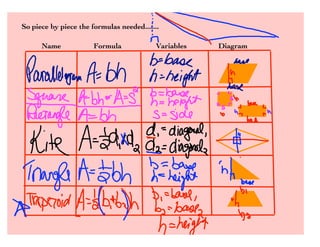 So piece by piece the formulas needed.......
Name Formula Variables Diagram
Parallelogram A=bh b=base
h=height
base
h
base
Square A=bh or A=s² b=base
h=height
Rectangle A=bh s=side
Kite A=½d₁d₂ d₁=diagonal₁
d₂=diagonal₂
Triangle A=½bh b=base
h=height
h
base
Trapezoid A=½(b₁+b₂)h b₁=base₁
b₂=base₂
h=height
b₁
h
b₂